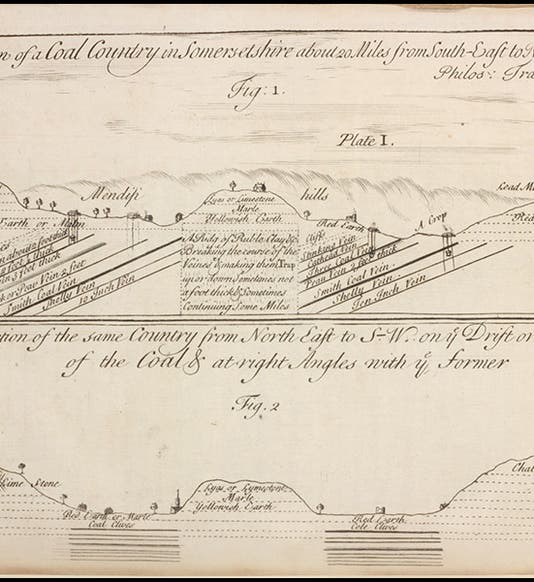 of a Coal Country in Somersetshire about 20 Miles from South-East to N
Philos: Tra
Fig: 1.
Plate I.
Mendip hills
Lyes or Limestone
Marle
Yellowish Earth
Earth or Malm
Red Earth
Clift
A Crop
Lead M
Red
A Ridg of Ruble Clay &c
Breaking the course of the
Veines & making them Trap
up or down Sometimes not
a foot thick & Sometimes
Continuing Some Miles
about 2 foot
1 foot thick
3 foot thick
Peaw Vein 2 feet
Smith Coal Vein
Shelly Vein
10 Inch Vein
Stinking Vein
Cathead Vein
Three Coal Vein
Peaw Vein 2 feet thick
Smith Coal Vein
Shelly Vein
Ten Inch Vein
tion of the same Country from North East to S-W. on yͤ Drift or
of the Coal & at right Angles with yͤ former
Fig. 2
Lime Stone
Lyes or Lymestone
Marle
Yellowish Earth
Chal
Red Earth or Marle
Coal Clives
Red Earth
Cole Clives